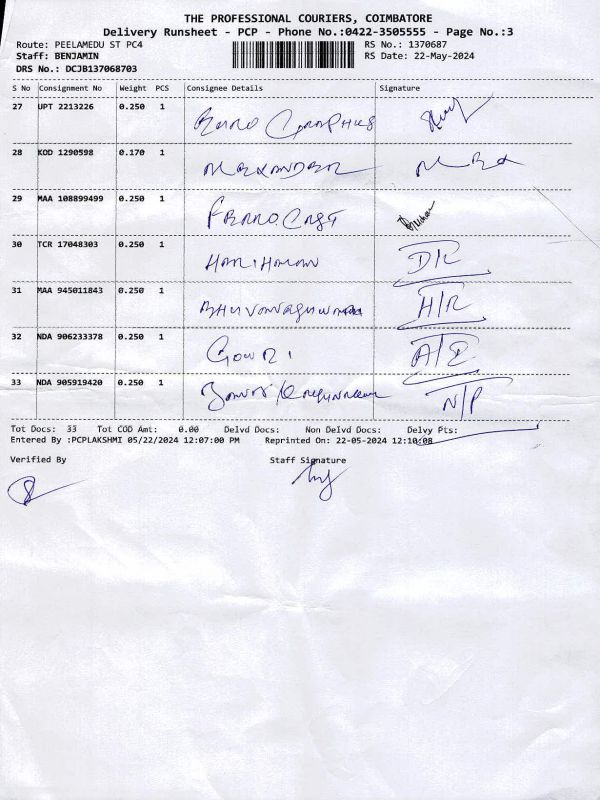 THE PROFESSIONAL COURIERS, COIMBATORE
Delivery Runsheet - PCP - Phone No.:0422-3505555 - Page No.:3
Route: PEELAMEDU ST PC4 RS No.: 1370687
Staff: BENJAMIN RS Date: 22-May-2024
DRS No.: DCJB137068703
S No Consignment No Weight PCS Consignee Details Signature
27 UPT 2213226 0.250 1
28 KOD 1290598 0.170 1
29 MAA 108899499 0.250 1
30 TCR 17048303 0.250 1 D/R
31 MAA 945011843 0.250 1 H/R
32 NDA 906233378 0.250 1 GOWRI
33 NDA 905919420 0.250 1 N/P
Tot Docs: 33 Tot COD Amt: 0.00 Delvd Docs: Non Delvd Docs: Delvy Pts:
Entered By :PCPLAKSHMI 05/22/2024 12:07:00 PM Reprinted On: 22-05-2024 12:10/08
Verified By Staff Signature